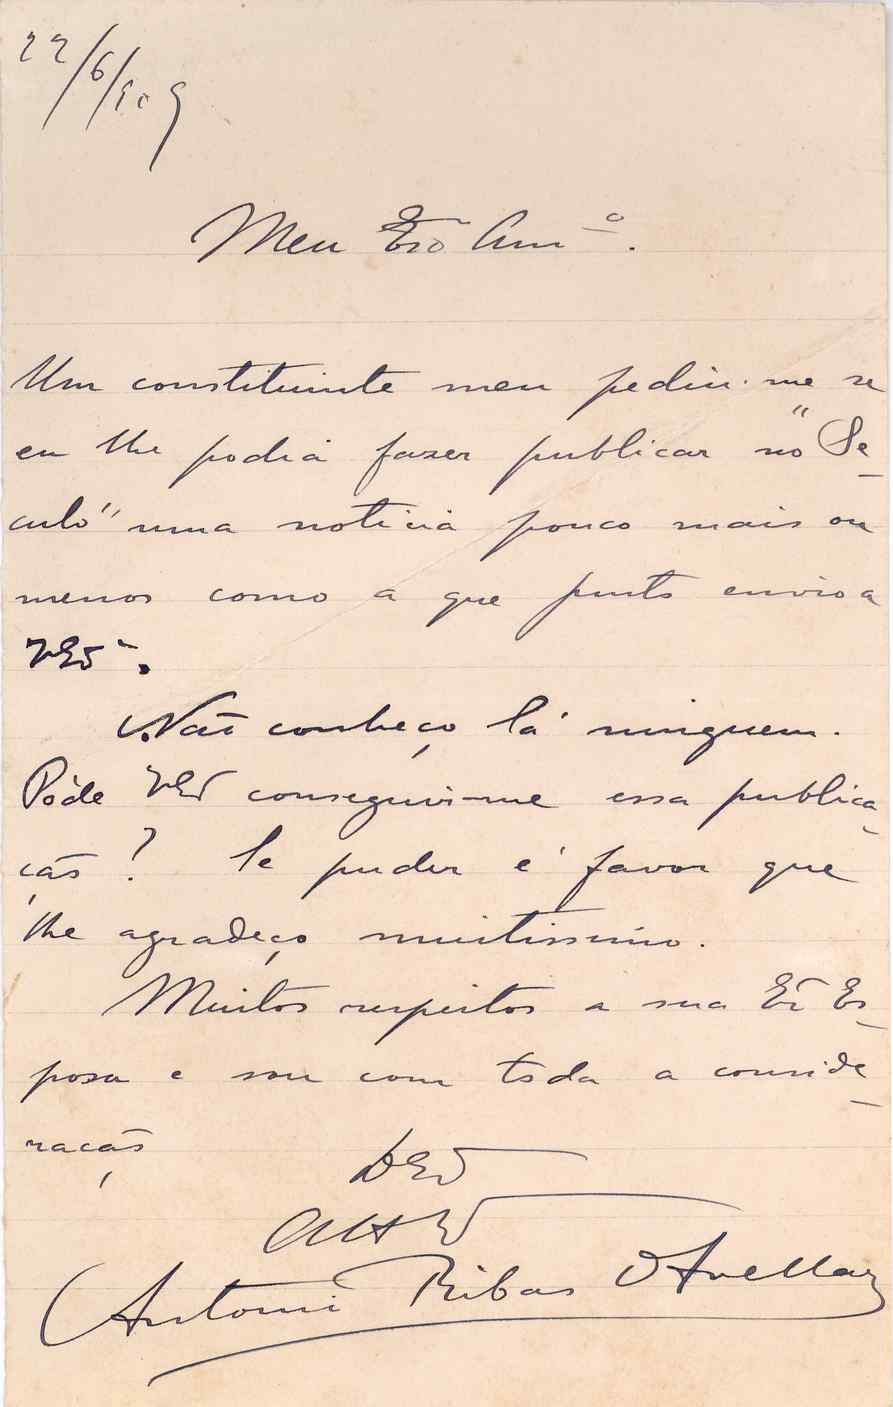 22/6/909
Meu Exº Amº.
Um constituinte meu pediu-me se
eu lhe podia fazer publicar no "Se-
culo" uma noticia pouco mais ou
menos como a que junto envio a
VExª.
Não conheço lá ninguem.
Póde VEx conseguir-me essa publica-
ção? Se puder é favor que
lhe agradeço muitissimo.
Muitos respeitos a sua Exª Es-
posa e sou com toda a conside-
ração
DVEx
Antonio Ribas d'Avellar